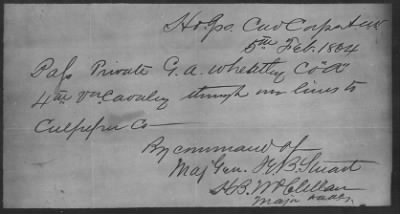 Hd Qrs. Cav Corps A.N.V.
5th Feb. 1864
Pass Private G. A. Co "A"
4th Va Cavalry through our lines to
Culpeper Co —
By command of
Maj Gen. J E B Stuart
H B McClellan
Major